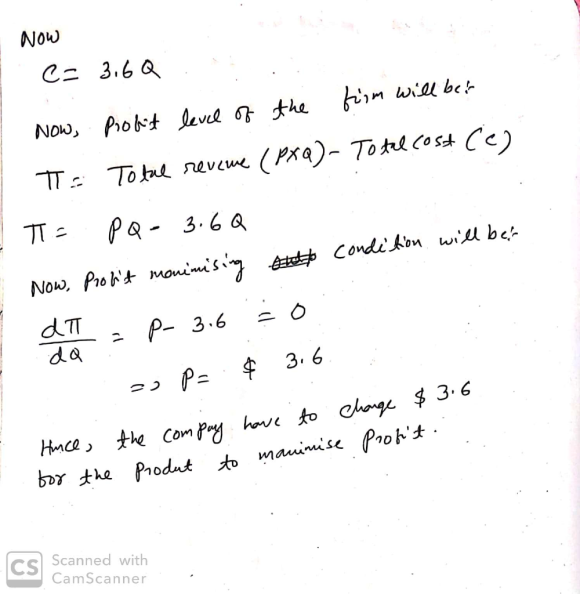 Now
C = 3.6 Q
Now, Profit level of the firm will be:-
π = Total reveue (P×Q) - Total cost (C)
π = PQ - 3.6 Q
Now, Profit maximising condition will be:-
dπ/dQ = P - 3.6 = 0
=> P = $ 3.6
Hnce, the compay have to charge $ 3.6
for the Produt to maximise Profit.
CS Scanned with
CamScanner